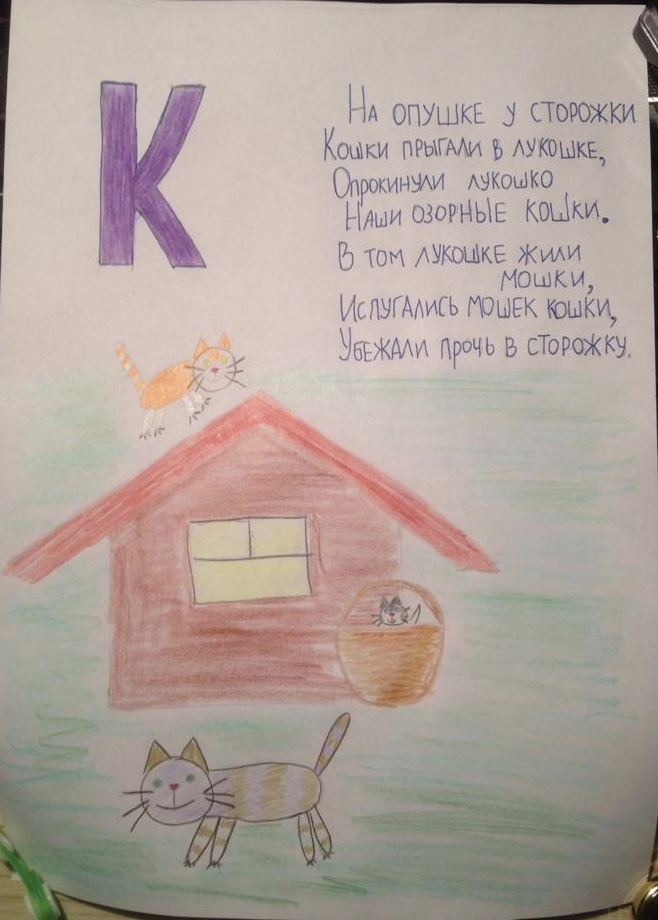 К
На опушке у сторожки
Кошки прыгали в лукошке,
Опрокинули лукошко
Наши озорные кошки.
В том лукошке жили
мошки,
Испугались мошек кошки,
Убежали прочь в сторожку.